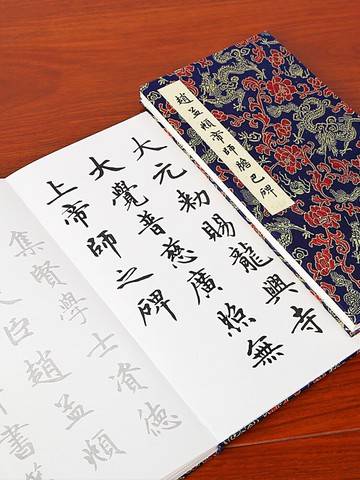 趙孟頫帝師膽巴碑
大元勅賜龍興寺
大覺普慈廣照無
上帝師之碑
集賢學士資德
臣趙孟頫
書篆